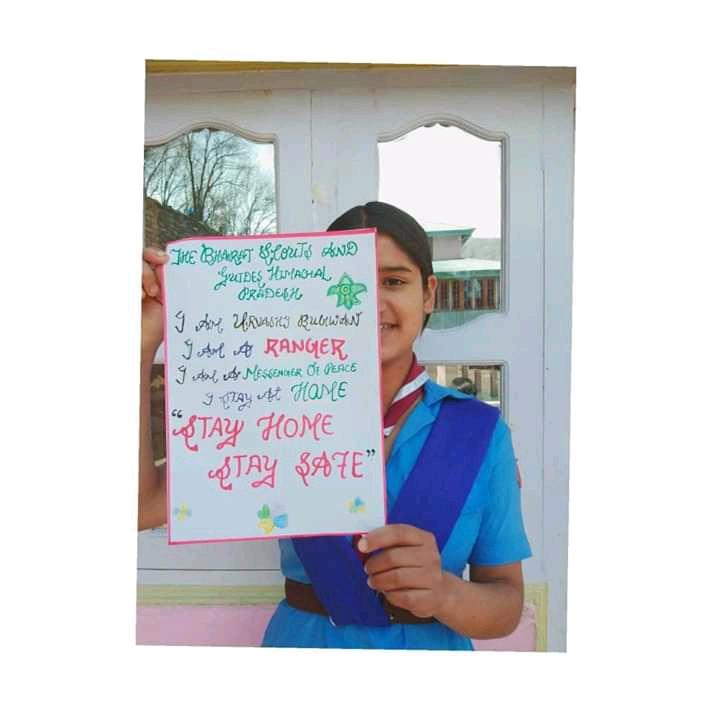 THE BHARAT SCOUTS AND
GUIDES, HIMACHAL
PRADESH
I AM URVASHI
I AM A RANGER
I AM A MESSENGER OF PEACE
I STAY AT HOME
"STAY HOME
STAY SAFE"